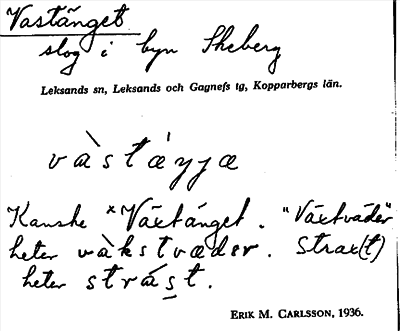 Vastänget
slog i byn Sheberg
Leksands sn, Leksands och Gagnefs tg, Kopparbergs län.
vàstæ̀yjæ
Kanske *Växtänget. "Växtväder"
heter vàkstvæder. Strax(t)
heter stràst.
ERIK M. CARLSSON, 1936.